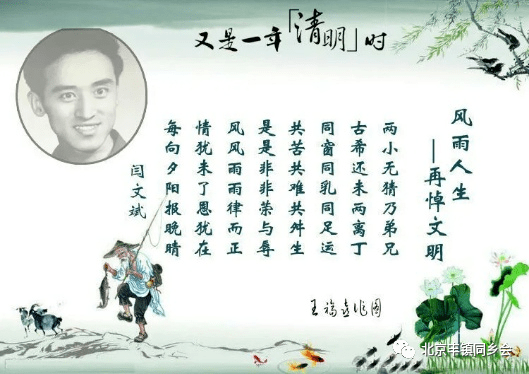 又是一年「清明」时
风雨人生
—再悼文明
两小无猜乃弟兄
古希还未两离丁
同窗同乳同足运
共苦共难共舛生
是是非非荣与辱
风风雨雨律而正
情犹未了恩犹在
每向夕阳报晚晴
闫文斌
王福 作图
北京丰镇同乡会